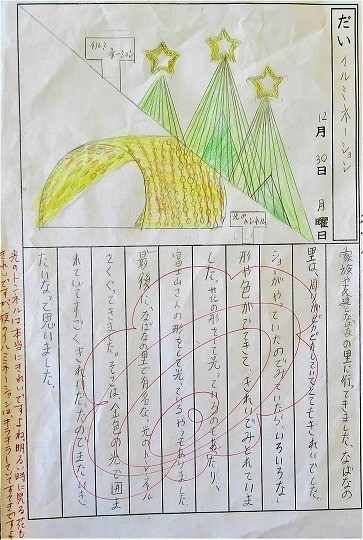 だい
イルミネーション
12月30日 月曜日
イルミネーション
光のトンネル
家族や友達となばなの里に行ってきました。なばなの
里は、周りがしていてとてもきれいでした。
ショーがやっていたのでみていたら、いろいろな
形や色がでてきて、きれいでみとれていま
した。花の形をして光っているのもあったり、
富士山さんの形をして光ってるやつもありました。
最後に、なばなの里で有名な、光のトンネル
をくぐってきました。そこは、金色の光で囲ま
れていてすごくきれいだったのでまたいき
たいなって思いました。
光のトンネルは本当にきれいですよね。明るい時に見る花も
きれいですが、夜のイルミネーションは、キラキラしていてすてきですよ